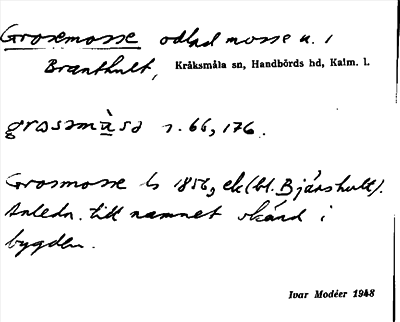 Grosemosse odlad mosse u. 1
Branthult, Kråksmåla sn, Handbörds hd, Kalm. l.
grosəmùsə s. 66, 176.
Grosmosse ls 1856, ek (bl. Bjärshult).
Anledn. till namnet okänd i
bygden.
Ivar Modéer 1948